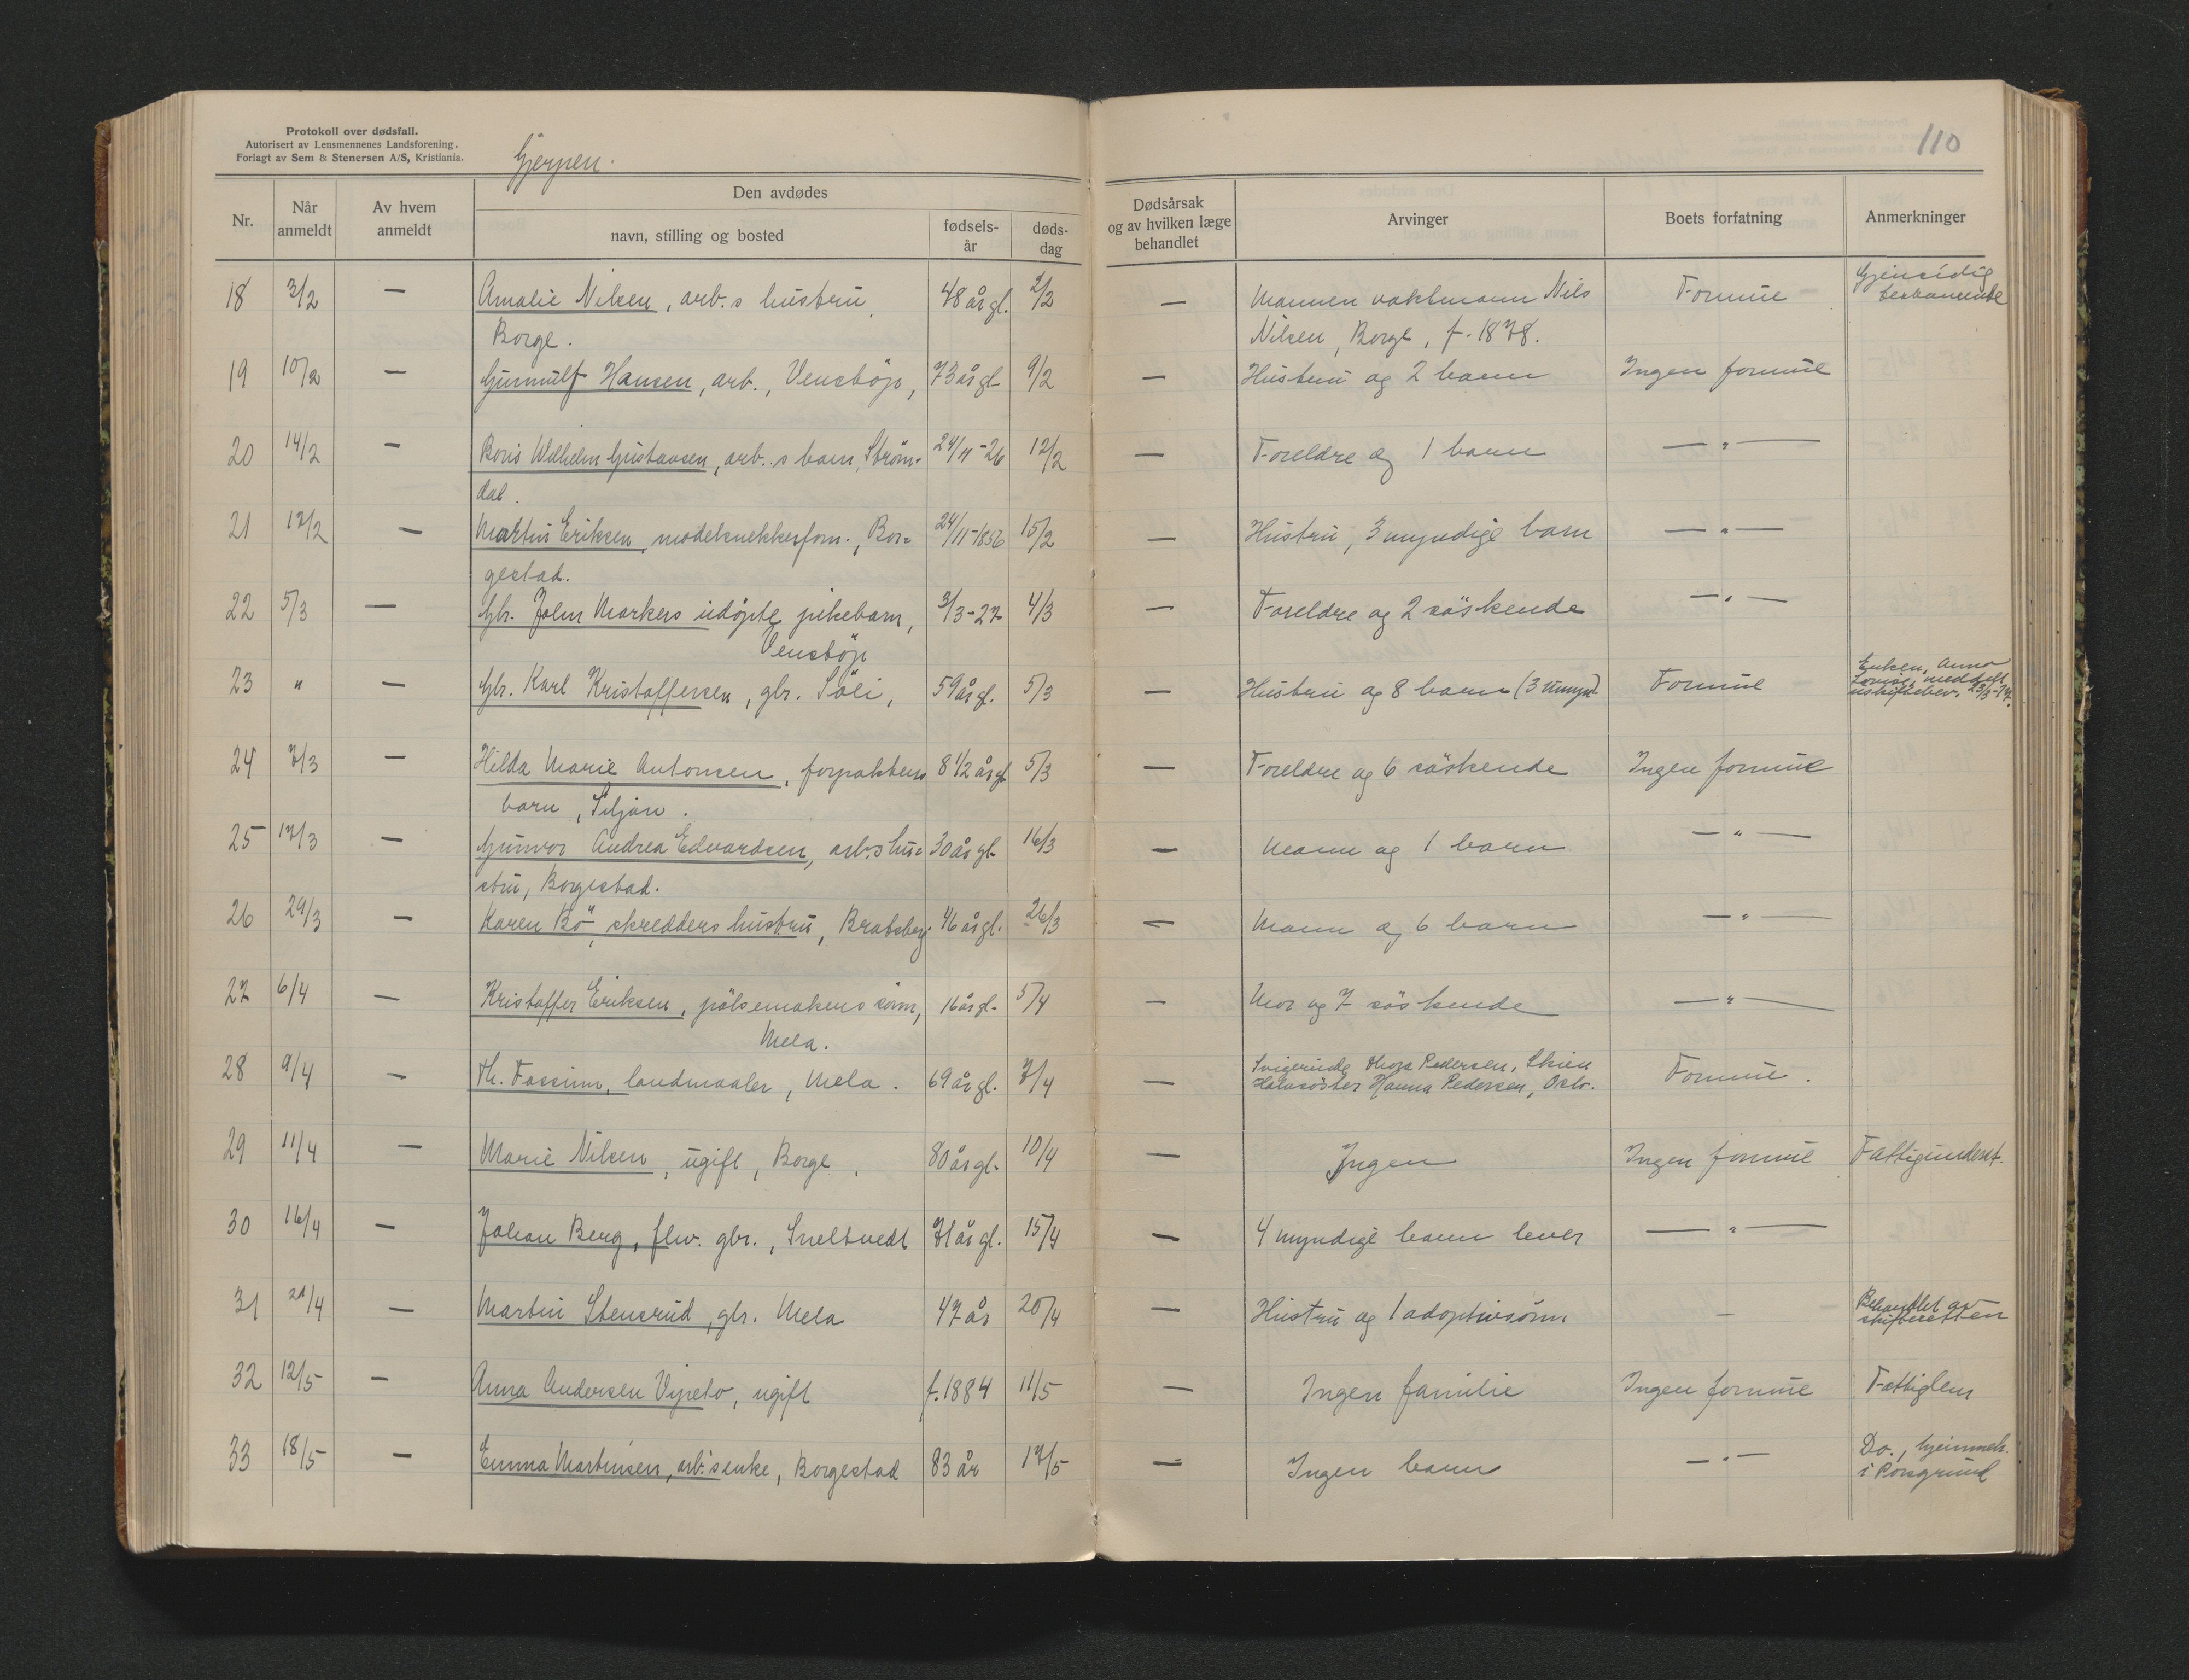 Protokoll over dødsfall.
Autorisert av Lensmennenes Landsforening.
Forlagt av Sem & Stenersen A/S, Kristiania.
Gjerpen.
110
Nr. Når anmeldt Av hvem anmeldt Den avdødes
navn, stilling og bosted fødsels-år døds-dag
Dødsårsak og av hvilken læge behandlet Arvinger Boets forfatning Anmerkninger
18 3/2 — Amalie Nilsen, arb.s hustru, 48 år gl. 2/2 — Mannen vaktmann Nils Formue Gjensidig
Borge. Nilsen, Borge, f. 1878. testamente
19 10/2 — Gunnulf Hansen, arb., Venstöp, 73 år gl 9/2 — Hustru og 2 barn Ingen formue
20 14/2 — Boris Wilhelm Gustavsen, arb.s barn, Ström- 24/11-26 12/2 — Foreldre og 1 barn — " —
dal.
21 17/2 — Martin Eriksen, modelsnekkerform., Bor= 24/11-1856 15/2 — Hustru, 3 myndige barn — " —
gestad.
22 5/3 — Gbr. John Markers udöpte pikebarn, 3/3-27 4/3 — Foreldre og 2 söskende — " —
Venstöp
23 " — Gbr. Karl Kristoffersen, gbr. Söli, 59 år gl. 5/3 — Hustru og 8 barn (3 umynd. Formue Enken, Anna
Lovise, meddelt
uskiftebev. 23/3-27.
24 7/3 — Hilda Marie Antonsen, forpakters 8 1/2 år gl 5/3 — Foreldre og 6 söskende Ingen formue
barn, Siljan.
25 17/3 — Gunvor Andrea Edvardsen, arb.s hu= 30 år gl. 16/3 — Mann og 1 barn — " —
stru, Borgestad.
26 29/3 — Karen Bö, skredders hustru, Bratsberg. 46 år gl. 26/3 — Mann og 6 barn — " —
27 6/4 — Kristoffer Eriksen, pölsemakers sönn, 16 år gl. 5/4 — Mor og 7 söskende — " —
Mela.
28 9/4 — Th. Fossum, landmaaler, Mela. 69 år gl. 7/4 — Svigerinde Pedersen, Skien Formue.
Halvsöster Hanna Pedersen, Oslo.
29 11/4 — Marie Nilsen, ugift, Borge, 80 år gl. 10/4 — Ingen Ingen formue Fattigunderst.
30 16/4 — Johan Berg, flv. gbr., Sneltvedt 71 år gl. 15/4 — 4 myndige barn lever — " —
31 21/4 — Martin Stensrud, gbr. Mela 47 år 20/4 — Hustru og 1 adoptivsönn — Behandlet av
skifteretten
32 12/5 — Anna Andersen Vipeto, ugift f. 1884 11/5 — Ingen familie Ingen formue Fattiglem
33 18/5 — Emma Martinsen, arb.s enke, Borgestad 83 år 17/5 — Ingen barn — " — Do., hjemmeh.
i Porsgrund